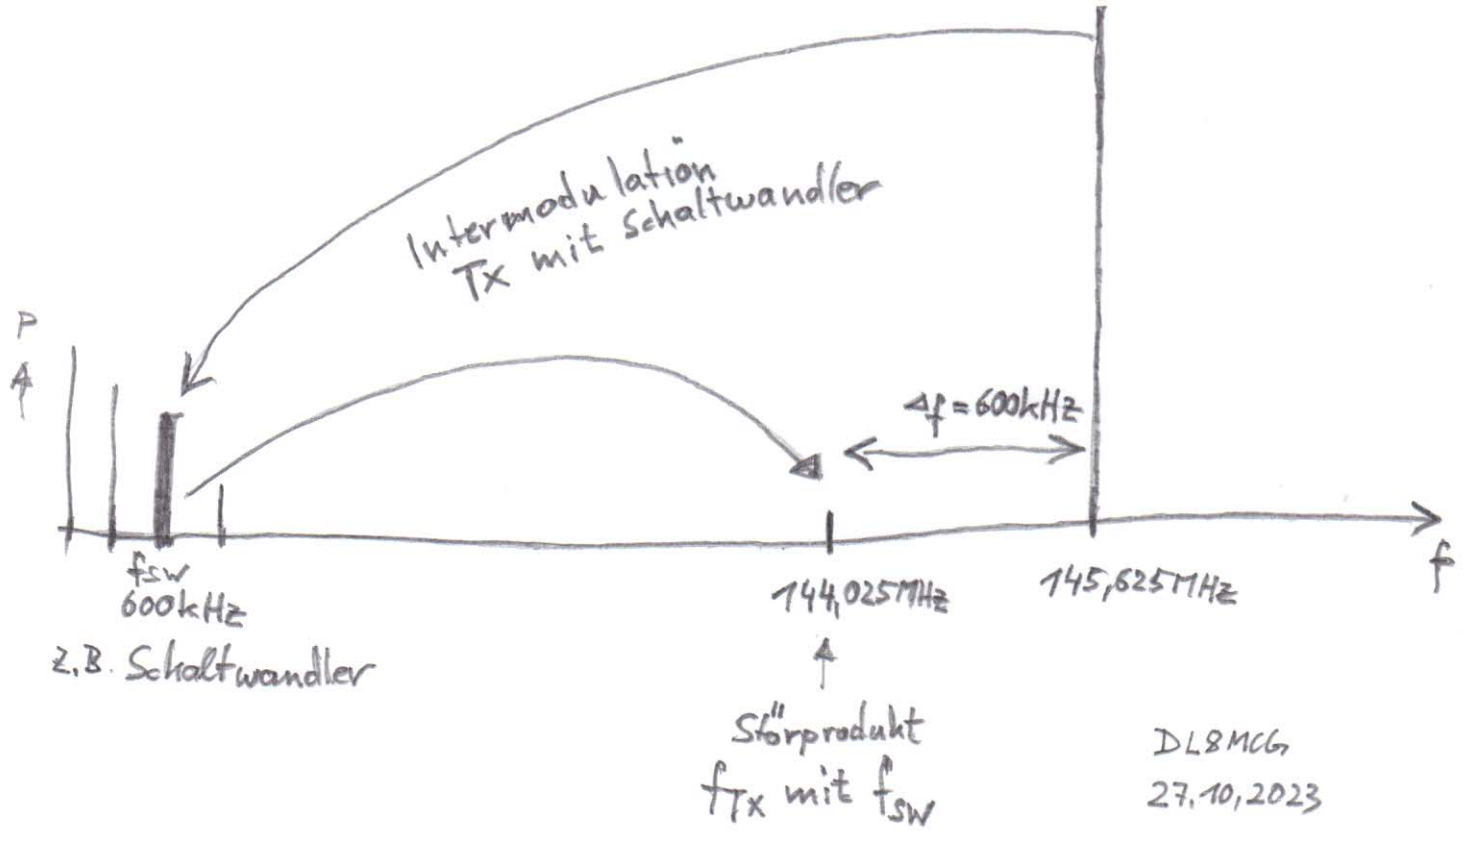 Intermodulation
Tx mit Schaltwandler
P
Δf = 600kHz
f
fsw
600kHz
z.B. Schaltwandler
144,025MHz
145,625MHz
Störprodukt
fTx mit fsw
DL8MCG
27.10.2023